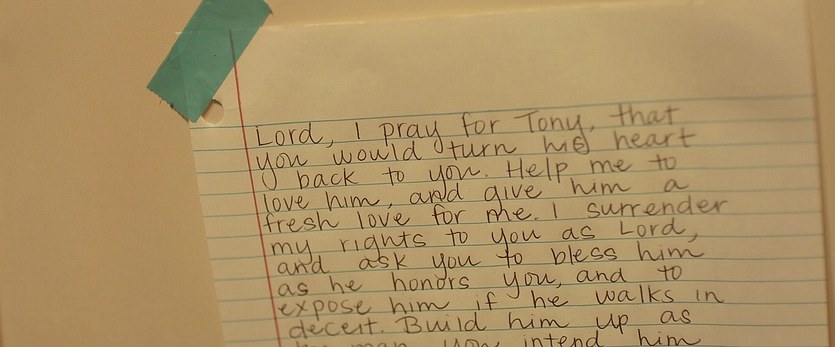 Lord, I pray for Tony, that
you would turn his heart
back to you. Help me to
love him, and give him a
fresh love for me. I surrender
my rights to you as Lord,
and ask you to bless him
as he honors you, and to
expose him if he walks in
deceit. Build him up as
the man you intend him